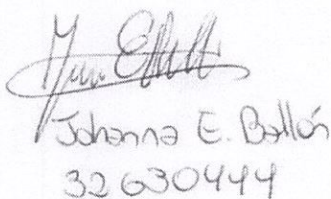 Johanna E. Ballón
32630444